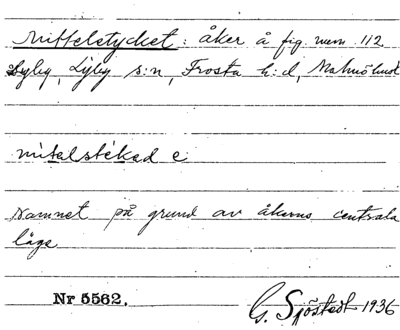 Mittelstycket: åker å fig. num 112
Lyby, Lyby s:n, Frosta h:d, Malmöhus l
mitelstêked e
Namnet på grund av åkerns centrala
läge
Nr 5562. G. Sjöstedt 1936